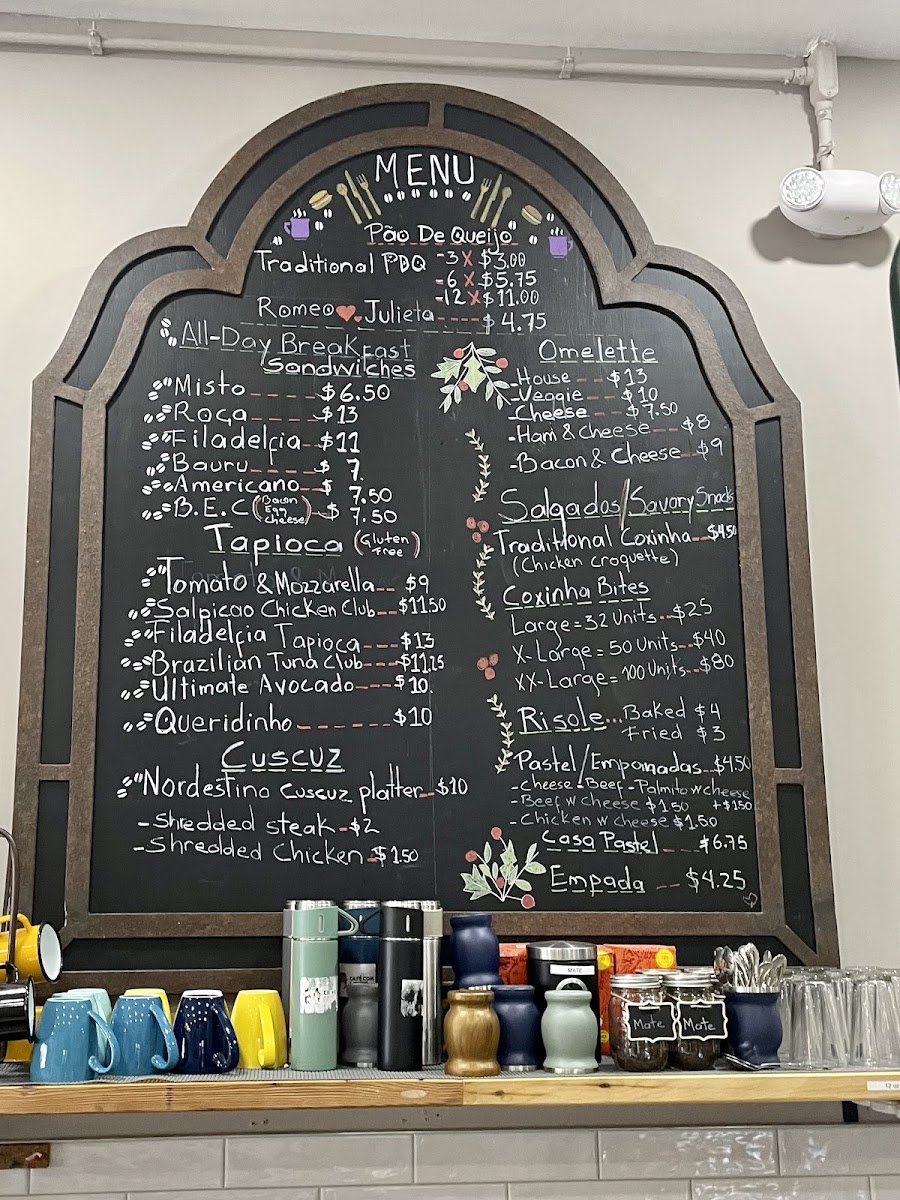 MENU
Pão De Queijo
Traditional PDQ -3 x $3.00
-6 x $5.75
-12 x $11.00
Romeo ❤ Julieta ----- $4.75
All-Day Breakfast
Sandwiches
Misto ---- $6.50
Roça ---- $13
Filadelfia -- $11
Bauru ---- $7.
Americano -- $7.50
B.E.C (Bacon Egg Cheese) -- $7.50
Tapioca (Gluten Free)
Tomato & Mozzarella -- $9
Salpicao Chicken Club -- $11.50
Filadelfia Tapioca --- $13
Brazilian Tuna Club --- $11.25
Ultimate Avocado --- $10.
Queridinho ------ $10
Cuscuz
Nordestino cuscuz platter -- $10
-Shredded steak - $2
-Shredded Chicken - $1.50
Omelette
-House -- $13
-Veggie -- $10
-Cheese -- $7.50
-Ham & Cheese -- $8
-Bacon & Cheese -- $9
Salgados/Savory Snacks
Traditional Coxinha -- $4.50
(Chicken croquette)
Coxinha Bites
Large = 32 Units -- $25
X-Large = 50 Units -- $40
XX-Large = 100 Units -- $80
Risole ... Baked $4
Fried $3
Pastel/Empanadas -- $4.50
-Cheese -Beef -Palmito w cheese
+$1.50
-Beef w cheese $1.50
-Chicken w cheese $1.50
Casa Pastel ---- $6.75
Empada -- $4.25
MATE
Mate
Mate